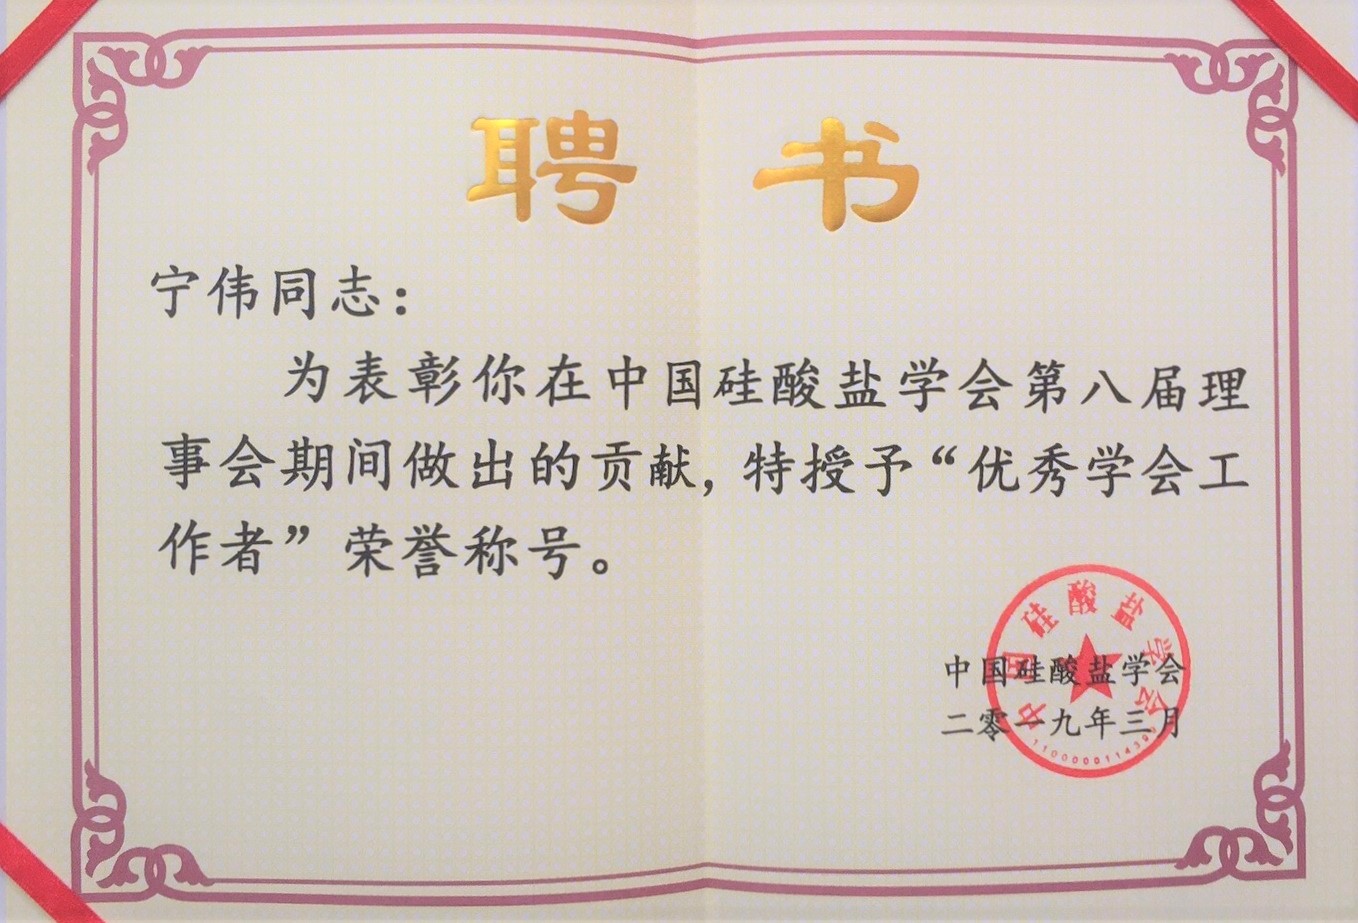 聘书
宁伟同志：
为表彰你在中国硅酸盐学会第八届理
事会期间做出的贡献，特授予“优秀学会工
作者”荣誉称号。
中国硅酸盐学会
二零一九年三月
中国硅酸盐学会